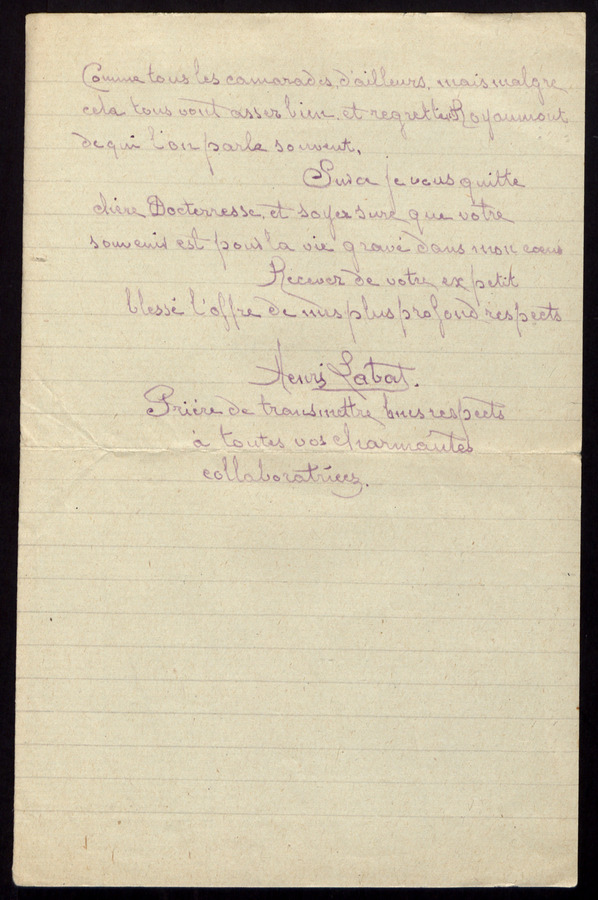 Comme tous les camarades, d'ailleurs, mais malgre
cela tous vont assez bien et regrette Royaumont
de qui l'on parle souvent.
Sur ce je vous quitte
chère Docterresse, et soyez sure que votre
souvenir est pour la vie gravé dans mon coeur
Recevez de votre ex petit
blessé l'offre de mes plus profond respects
Henri Labat.
Prière de transmettre mes respects
à toutes vos charmantes
collaboratrices.